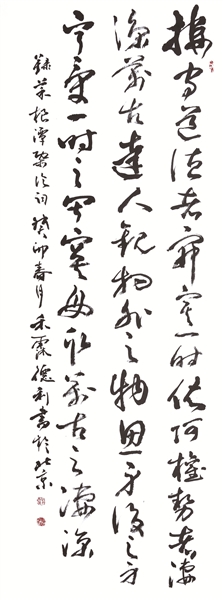 棲守道德者寂寞一時依阿權勢者淒
涼萬古達人觀物外之物思身後之身
寧受一時之寂寞毋取萬古之淒涼
錄菜根譚 癸卯春月 德利書於北京